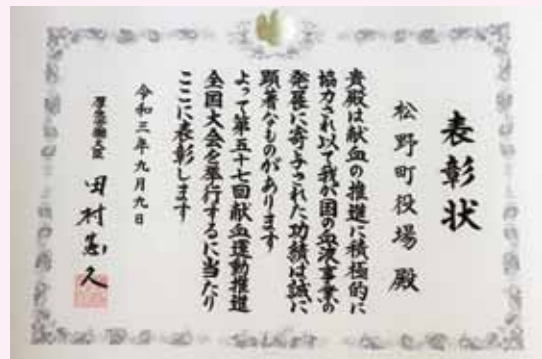 表彰状
松野町役場 殿
貴殿は献血の推進に積極的に
協力され以て我が国の血液事業の
発展に寄与された功績は誠に
顕著なものがあります
よって第五十七回献血運動推進
全国大会を挙行するに当たり
ここに表彰します
令和三年九月九日
厚生労働大臣 田村憲久